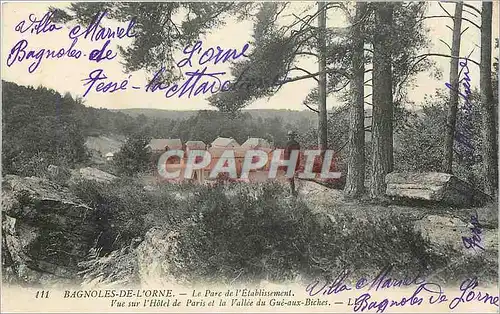 Villa Mariel
Bagnoles-de-L'orne
Fessé-la-Madeleine
CARTE POSTALE
CPARAMA
111 BAGNOLES-DE-L'ORNE. - Le Parc de l'Établissement.
Vue sur l'Hôtel de Paris et la Vallée du Gué-aux-Biches. - L
Villa Mariel
Bagnoles de Lorne